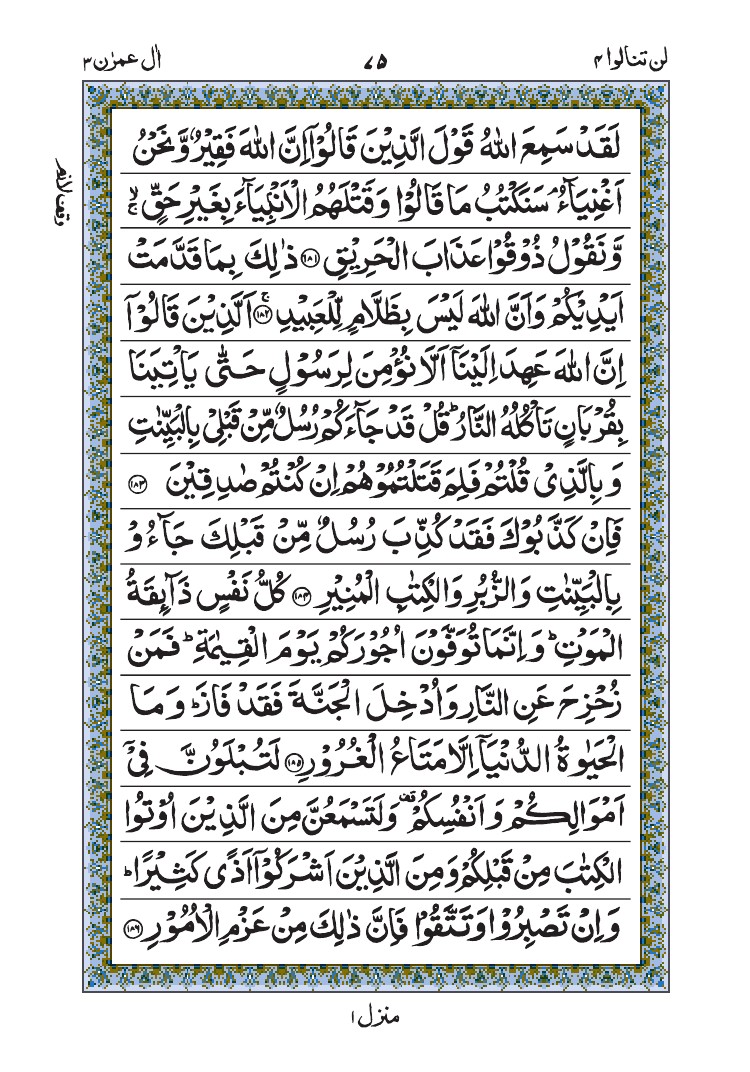 لن تنالوا ۴ ۷۵ اٰل عمرٰن ۳
لَقَدْ سَمِعَ اللّٰهُ قَوْلَ الَّذِیْنَ قَالُوْۤا اِنَّ اللّٰهَ فَقِیْرٌ وَّ نَحْنُ
اَغْنِیَآءُ ۘ سَنَكْتُبُ مَا قَالُوْا وَ قَتْلَهُمُ الْاَنْۢبِیَآءَ بِغَیْرِ حَقٍّ ۙۚ
وقف لازم
وَّ نَقُوْلُ ذُوْقُوْا عَذَابَ الْحَرِیْقِ ﴿۱۸۱﴾ ذٰلِكَ بِمَا قَدَّمَتْ
اَیْدِیْكُمْ وَ اَنَّ اللّٰهَ لَیْسَ بِظَلَّامٍ لِّلْعَبِیْدِ ﴿۱۸۲﴾ۚ اَلَّذِیْنَ قَالُوْۤا
اِنَّ اللّٰهَ عَهِدَ اِلَیْنَاۤ اَلَّا نُؤْمِنَ لِرَسُوْلٍ حَتّٰی یَاْتِیَنَا
بِقُرْبَانٍ تَاْكُلُهُ النَّارُ ؕ قُلْ قَدْ جَآءَكُمْ رُسُلٌ مِّنْ قَبْلِیْ بِالْبَیِّنٰتِ
وَ بِالَّذِیْ قُلْتُمْ فَلِمَ قَتَلْتُمُوْهُمْ اِنْ كُنْتُمْ صٰدِقِیْنَ ﴿۱۸۳﴾
فَاِنْ كَذَّبُوْكَ فَقَدْ كُذِّبَ رُسُلٌ مِّنْ قَبْلِكَ جَآءُوْ
بِالْبَیِّنٰتِ وَ الزُّبُرِ وَ الْكِتٰبِ الْمُنِیْرِ ﴿۱۸۴﴾ كُلُّ نَفْسٍ ذَآىِٕقَةُ
الْمَوْتِ ؕ وَ اِنَّمَا تُوَفَّوْنَ اُجُوْرَكُمْ یَوْمَ الْقِیٰمَةِ ؕ فَمَنْ
زُحْزِحَ عَنِ النَّارِ وَ اُدْخِلَ الْجَنَّةَ فَقَدْ فَازَ ؕ وَ مَا
الْحَیٰوةُ الدُّنْیَاۤ اِلَّا مَتَاعُ الْغُرُوْرِ ﴿۱۸۵﴾ لَتُبْلَوُنَّ فِیْۤ
اَمْوَالِكُمْ وَ اَنْفُسِكُمْ ۫ وَ لَتَسْمَعُنَّ مِنَ الَّذِیْنَ اُوْتُوا
الْكِتٰبَ مِنْ قَبْلِكُمْ وَ مِنَ الَّذِیْنَ اَشْرَكُوْۤا اَذًی كَثِیْرًا ؕ
وَ اِنْ تَصْبِرُوْا وَ تَتَّقُوْا فَاِنَّ ذٰلِكَ مِنْ عَزْمِ الْاُمُوْرِ ﴿۱۸۶﴾
منزل ۱